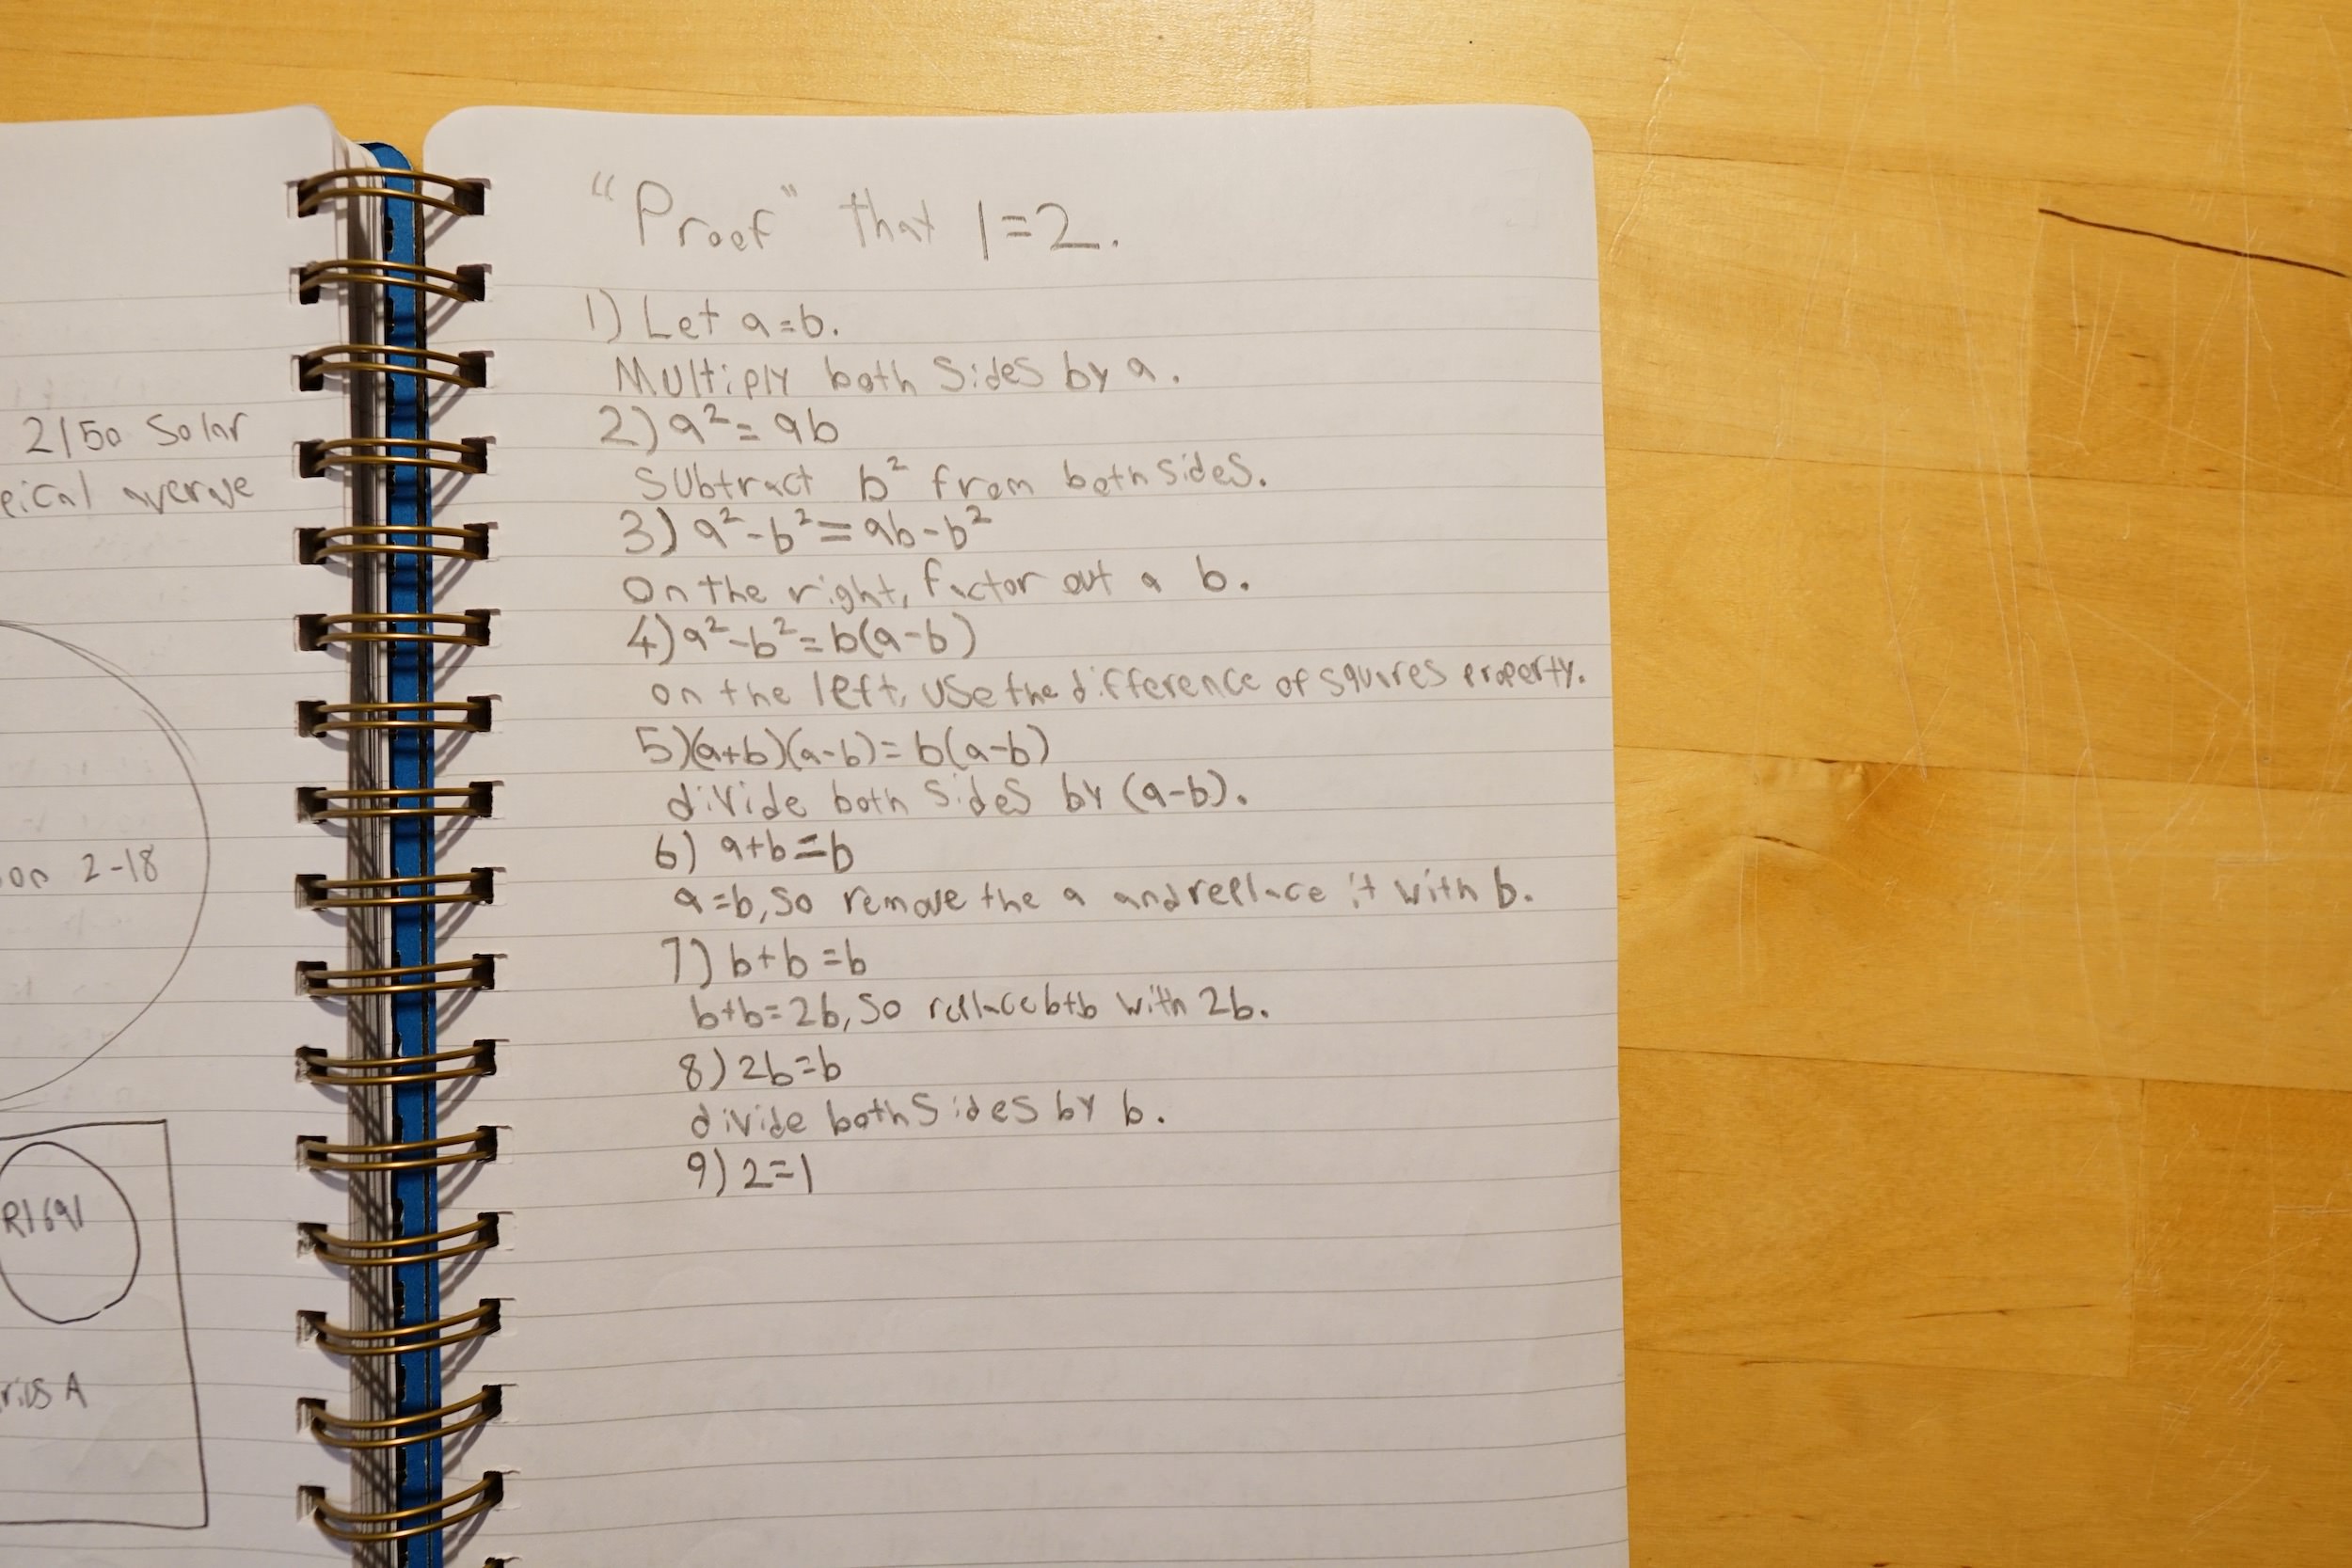 2150 Solar
eical average
on 2-18
R1691
rius A
"Proof" that 1=2.
1) Let a=b.
Multiply both sides by a.
2) a²=ab
Subtract b² from both sides.
3) a²-b²=ab-b²
On the right, factor out a b.
4) a²-b²=b(a-b)
on the left, use the difference of squares property.
5)(a+b)(a-b)=b(a-b)
divide both sides by (a-b).
6) a+b=b
a=b, so remove the a and replace it with b.
7) b+b=b
b+b=2b, so replace b+b with 2b.
8) 2b=b
divide both sides by b.
9) 2=1